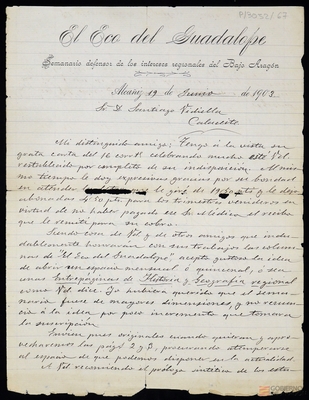 P/3032/67
El Eco del Guadalope
Semanario defensor de los intereses regionales del Bajo Aragón
Alcañiz 19 de Junio de 1903.
Sr. D. Santiago Vidiella
Calaceite.
Mi distinguido amigo: Tengo á la vista su
grata carta del 16 corrte. celebrando mucho esté Vd.
restablecido por completo de su indisposición. Al mismo
tiempo le doy expresivas gracias por su bondad
en atender el giro de
abonadas 4'50 pts. para los trimestres venideros en
virtud de no haber pagado ese Sr. Médico el recibo
que le remití para su cobro.
Siendo cosa de Vd. y de otros amigos que indudablemente
honrarán con sus trabajos las columnas
de "El Eco del Guadalope", acepto gustoso la idea
de abrir un espacio mensual ó quincenal, ó sea
unas de Historia y Geografía regional
como Vd. dice. Yo hubiera querido que el semanario
fuese de mayores dimensiones, y no renuncio
á la idea por poco incremento que tomara
la suscripción.
Envíen pues originales cuando quieran y aprovecharemos
las págs. 2 y 3, procurando atemperarse
al espacio de que podemos disponer en la actualidad.
A Vd. recomiendo el prólogo sintético de los estu-
GOBIERNO